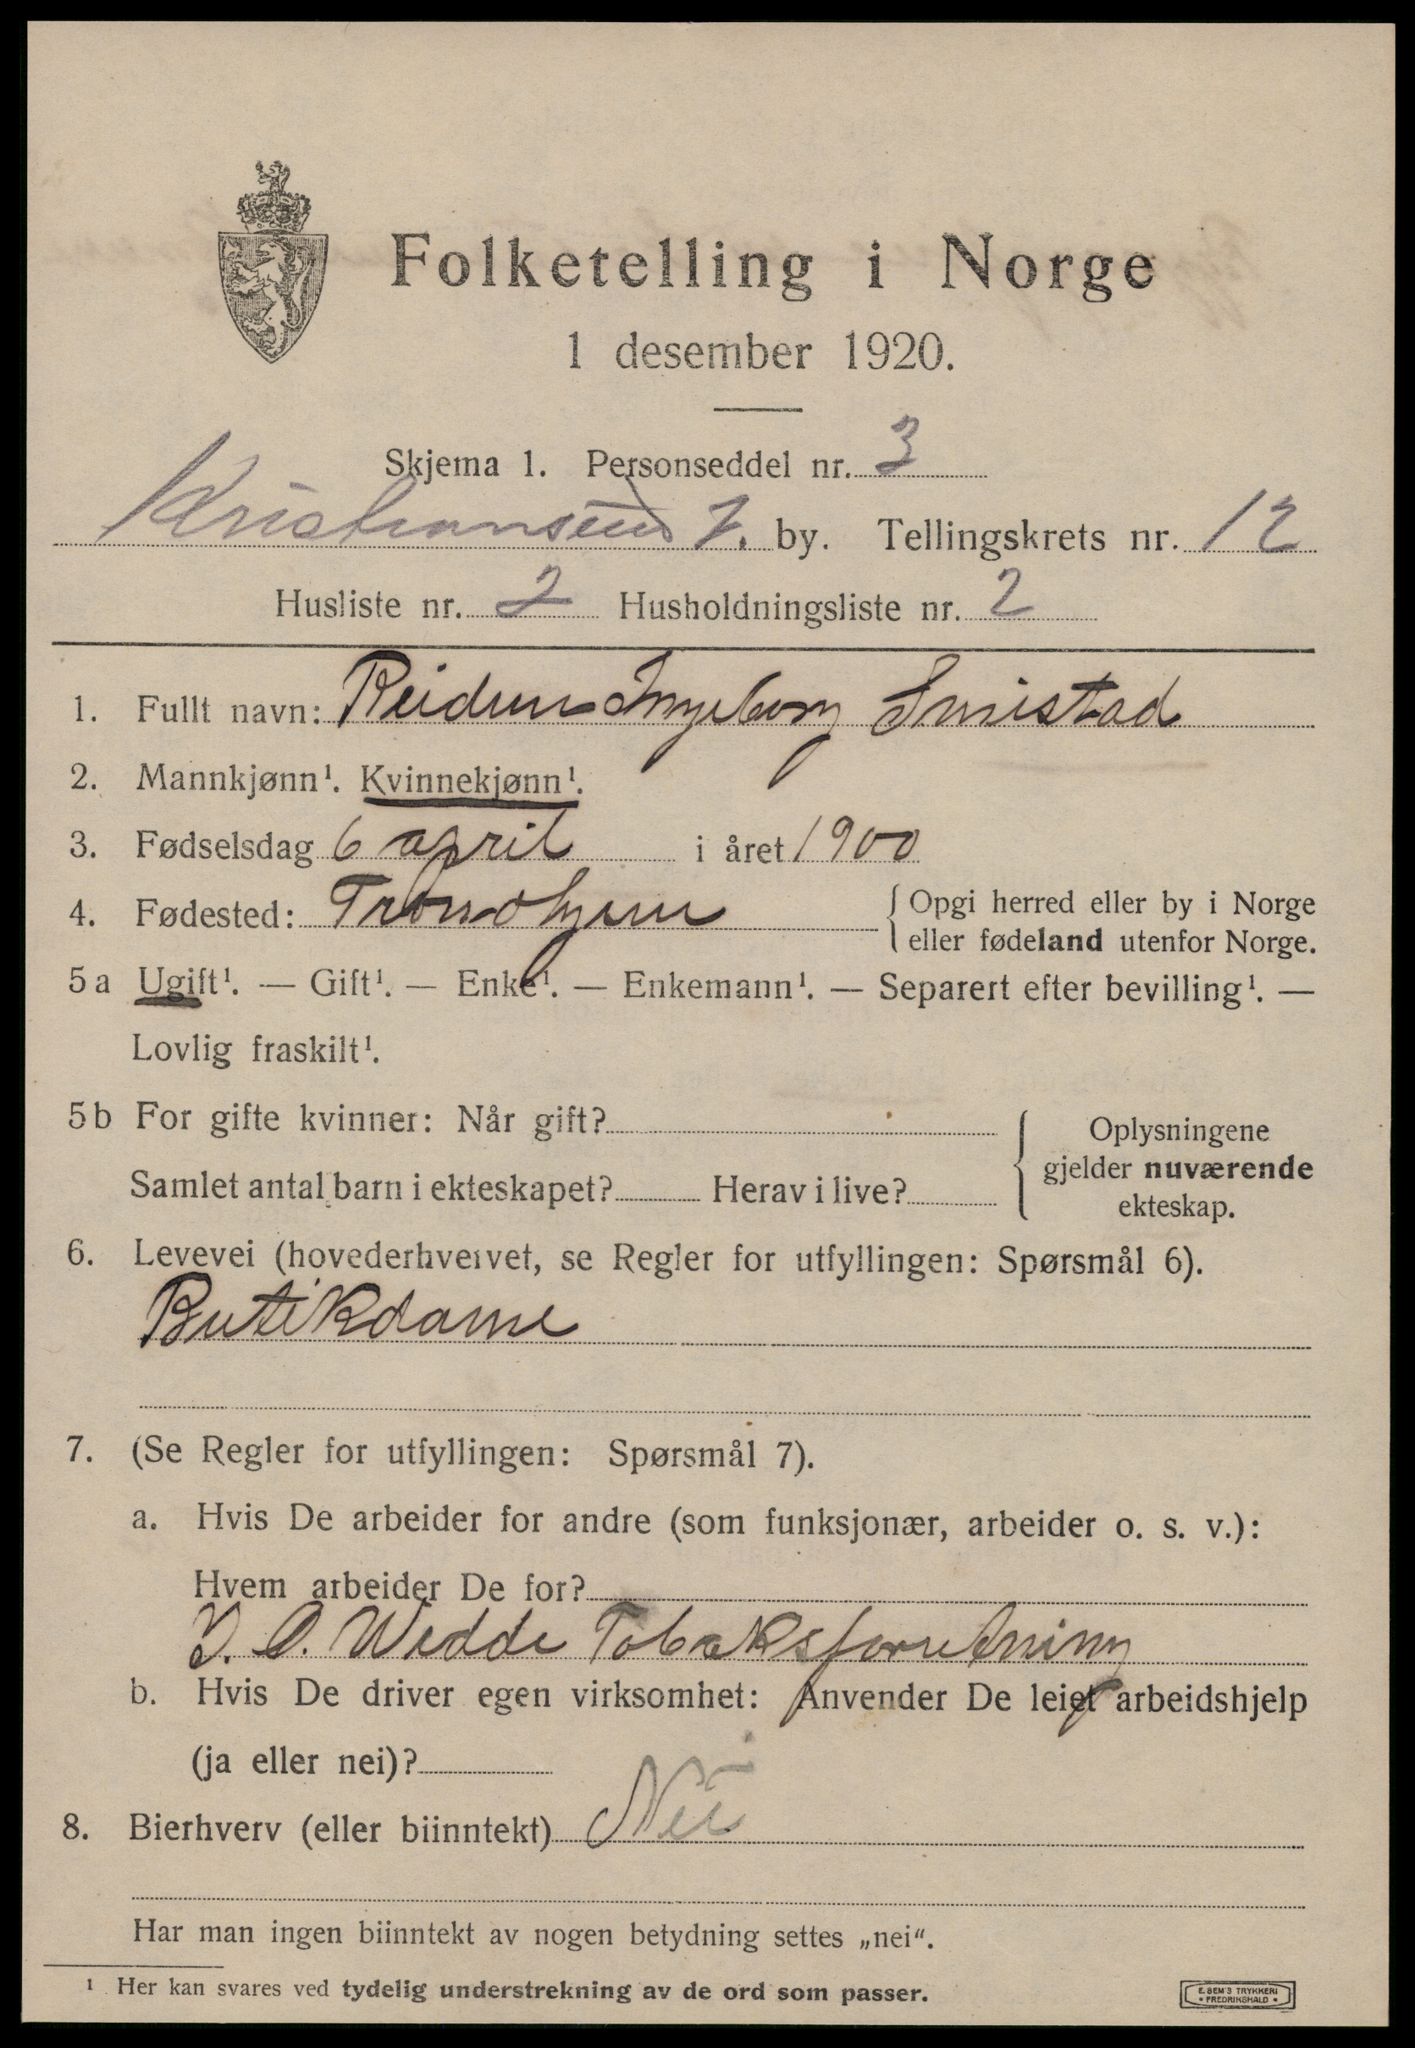 Folketelling i Norge
1 desember 1920.
Skjema 1. Personseddel nr. 3
Kristiansund by. Tellingskrets nr. 12
Husliste nr. 2 Husholdningsliste nr. 2
1. Fullt navn: Reidun Ingeborg Smistad
2. Mannkjønn¹. Kvinnekjønn¹.
3. Fødselsdag 6 april i året 1900
4. Fødested: Trondhjem { Opgi herred eller by i Norge
eller fødeland utenfor Norge.
5a Ugift¹. — Gift¹. — Enke¹. — Enkemann¹. — Separert efter bevilling¹. —
Lovlig fraskilt¹.
5b For gifte kvinner: Når gift?
Samlet antal barn i ekteskapet? Herav i live?
{ Oplysningene
gjelder nuværende
ekteskap.
6. Levevei (hovederhvervet, se Regler for utfyllingen: Spørsmål 6).
Butikdame
7. (Se Regler for utfyllingen: Spørsmål 7).
a. Hvis De arbeider for andre (som funksjonær, arbeider o. s. v.):
Hvem arbeider De for?
O. Wedde Tobaksforretning
b. Hvis De driver egen virksomhet: Anvender De leiet arbeidshjelp
(ja eller nei)?
8. Bierhverv (eller biinntekt) Nei
Har man ingen biinntekt av nogen betydning settes „nei“.
¹ Her kan svares ved tydelig understrekning av de ord som passer.
E. SEM'S TRYKKERI
• FREDRIKSHALD •